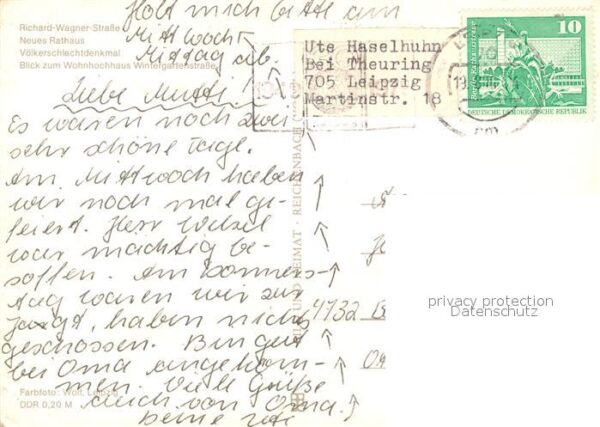 Holt mich bitte am
Mittwoch
Mittag ab.
Richard-Wagner-Straße
Neues Rathaus
Völkerschlechtdenkmal
Blick zum Wohnhochhaus Wintergartenstraße
Ute Haselhuhn
Bei Theuring
705 Leipzig
Martinstr. 18
10
DEUTSCHE DEMOKRATISCHE REPUBLIK
Liebe Mutti!
Es waren noch zwei
sehr schöne Tage.
Am Mittwoch haben
wir noch mal ge-
feiert. Herr
war mächtig be-
soffen. Am Donners-
tag waren wir zur
Jagd, haben nichts
geschossen. Bin gut
bei Oma angekom-
men. Viele Grüße
auch von Oma.
Deine Uti
BILD UND HEIMAT · REICHENBACH
4732
privacy protection
Datenschutz
Farbfoto: Wolf, Leipzig
DDR 0,20 M